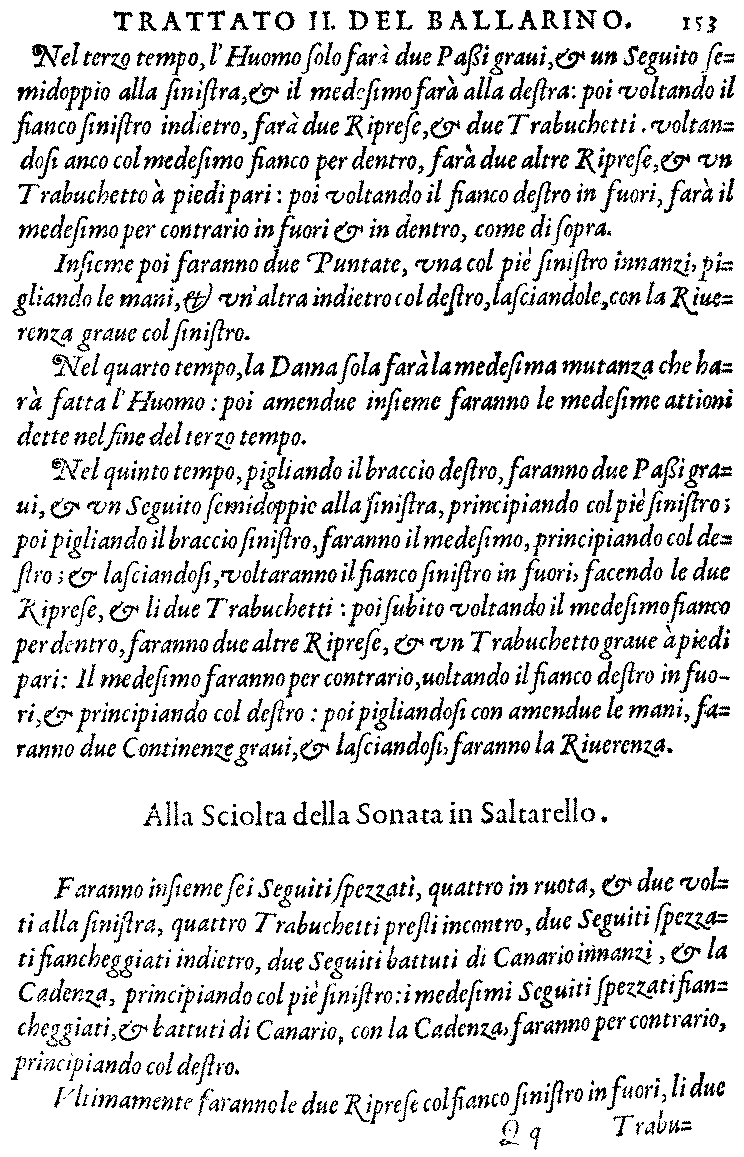 TRATTATO II. DEL BALLARINO. 153
Nel terzo tempo, l'Huomo solo farà due Passi graui, & un Seguito se=
midoppio alla sinistra, & il medesimo farà alla destra: poi voltando il
fianco sinistro indietro, farà due Riprese, & due Trabuchetti. voltan=
dosi anco col medesimo fianco per dentro, farà due altre Riprese, & vn
Trabuchetto à piedi pari: poi voltando il fianco destro in fuori, farà il
medesimo per contrario in fuori & in dentro, come di sopra.
Insieme poi faranno due Puntate, vna col piè sinistro innanzi, pi=
gliando le mani, & vn'altra indietro col destro, lasciandole, con la Riue=
renza graue col sinistro.
Nel quarto tempo, la Dama sola farà la medesima mutanza che ha=
rà fatta l'Huomo: poi amendue insieme faranno le medesime attioni
dette nel fine del terzo tempo.
Nel quinto tempo, pigliando il braccio destro, faranno due Passi gra=
ui, & vn Seguito semidoppio alla sinistra, principiando col piè sinistro;
poi pigliando il braccio sinistro, faranno il medesimo, principiando col de=
stro; & lasciandosi, voltaranno il fianco sinistro in fuori, facendo le due
Riprese, & li due Trabuchetti: poi subito voltando il medesimo fianco
per dentro, faranno due altre Riprese, & vn Trabuchetto graue à piedi
pari: Il medesimo faranno per contrario, uoltando il fianco destro in fuo-
ri, & principiando col destro: poi pigliandosi con amendue le mani, fa=
ranno due Continenze graui, & lasciandosi, faranno la Riuerenza.
Alla Sciolta della Sonata in Saltarello.
Faranno insieme sei Seguiti spezzati, quattro in ruota, & due vol=
ti alla sinistra, quattro Trabuchetti presti incontro, due Seguiti spezza=
ti fiancheggiati indietro, due Seguiti battuti di Canario innanzi, & la
Cadenza, principiando col piè sinistro: i medesimi Seguiti spezzati fian=
cheggiati, & battuti di Canario, con la Cadenza, faranno per contrario,
principiando col destro.
Vltimamente faranno le due Riprese col fianco sinistro in fuori, li due
Qq Trabu=